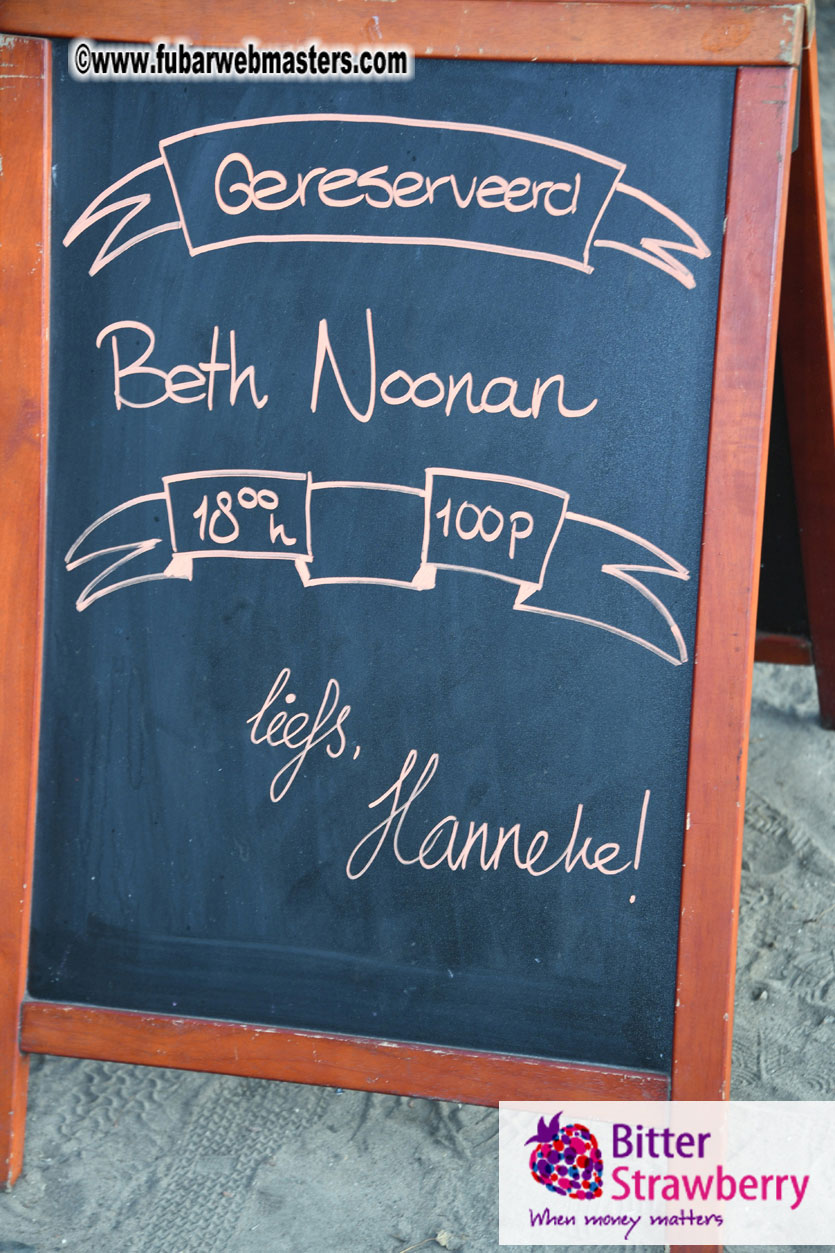 ©www.fubarwebmasters.com
Gereserveerd
Beth Noonan
18⁰⁰h 100p
liefs,
Hanneke!
Bitter
Strawberry
When money matters